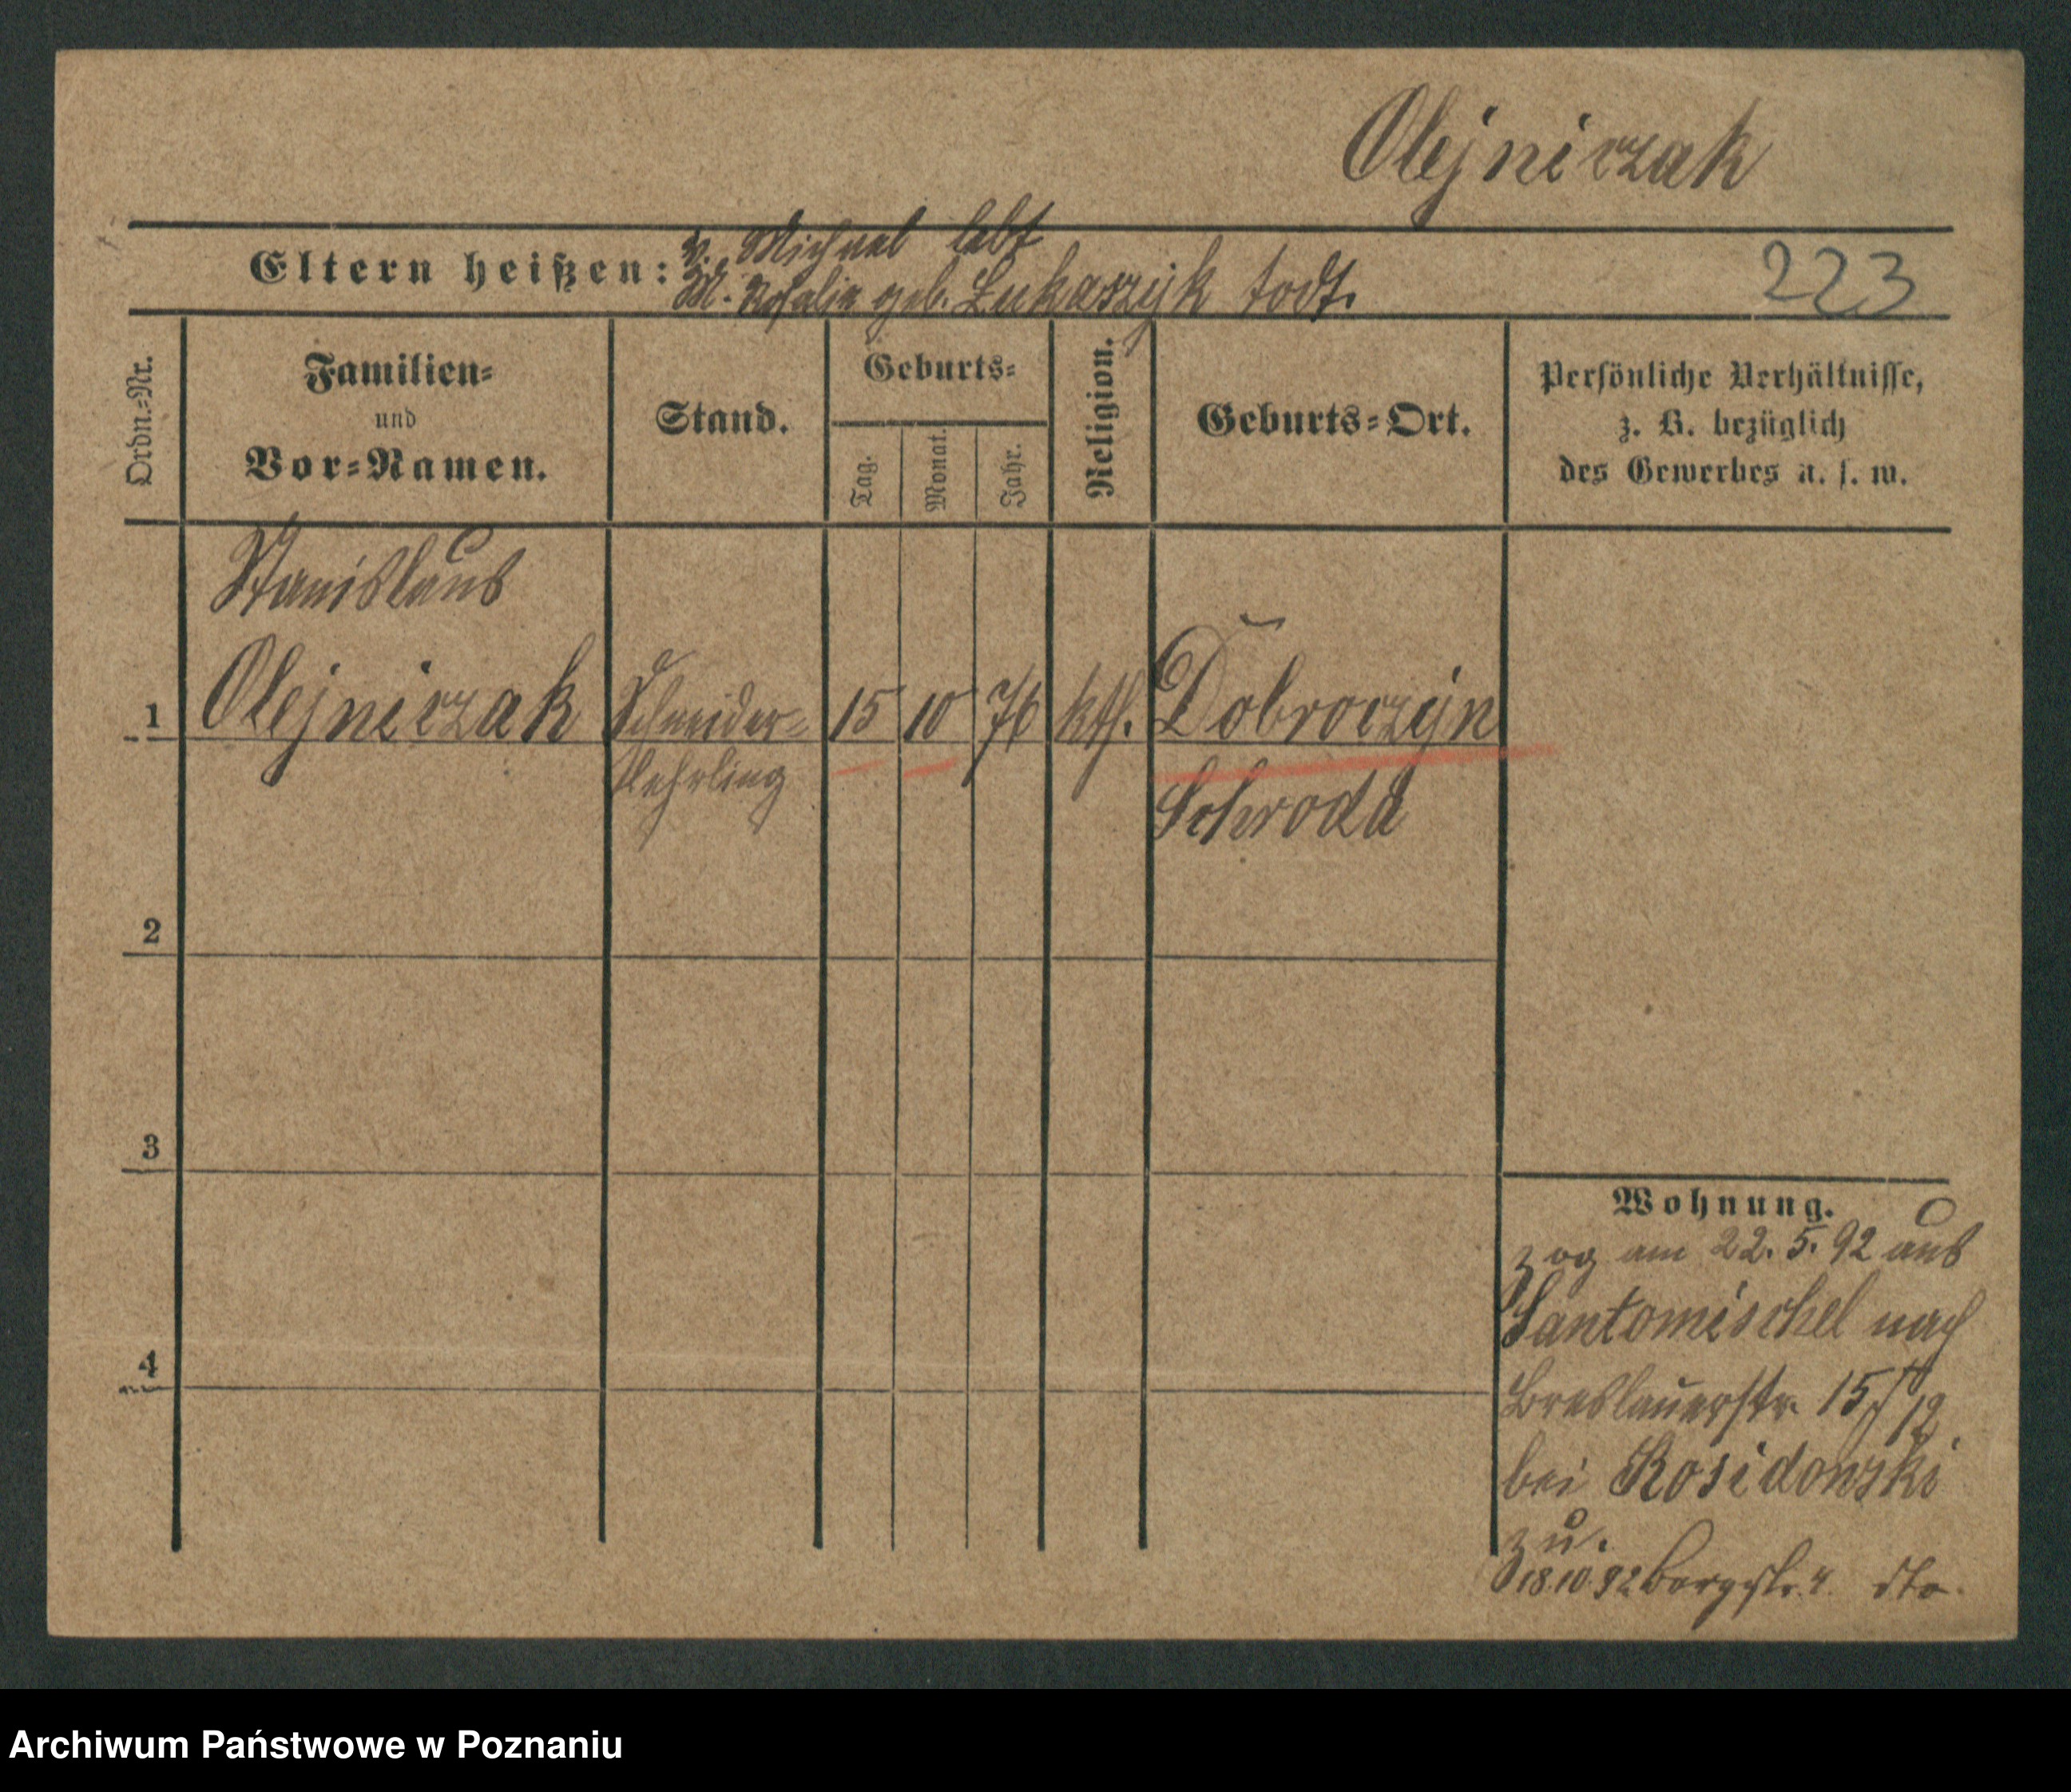 Olejniczak
Eltern heißen: V. Michael lebt
M. Rosalie geb. Lukaszyk todt.
223
Ordn.-Nr.
Familien-
und
Vor-Namen.
Stand.
Geburts-
Tag.
Monat.
Jahr.
Religion.
Geburts-Ort.
Persönliche Verhältnisse,
z. B. bezüglich
des Gewerbes u. s. w.
Stanislaus
1 Olejniczak Schneider- 15 10 76 kth. Dobroczyn
Lehrling Schroda
2
3
4
Wohnung.
zog am 22. 5. 92 aus
Santomischel nach
Breslauerstr. 15
bei Rosidowski
zu.
18.10.92 Bergstr. 4. dto.
Archiwum Państwowe w Poznaniu